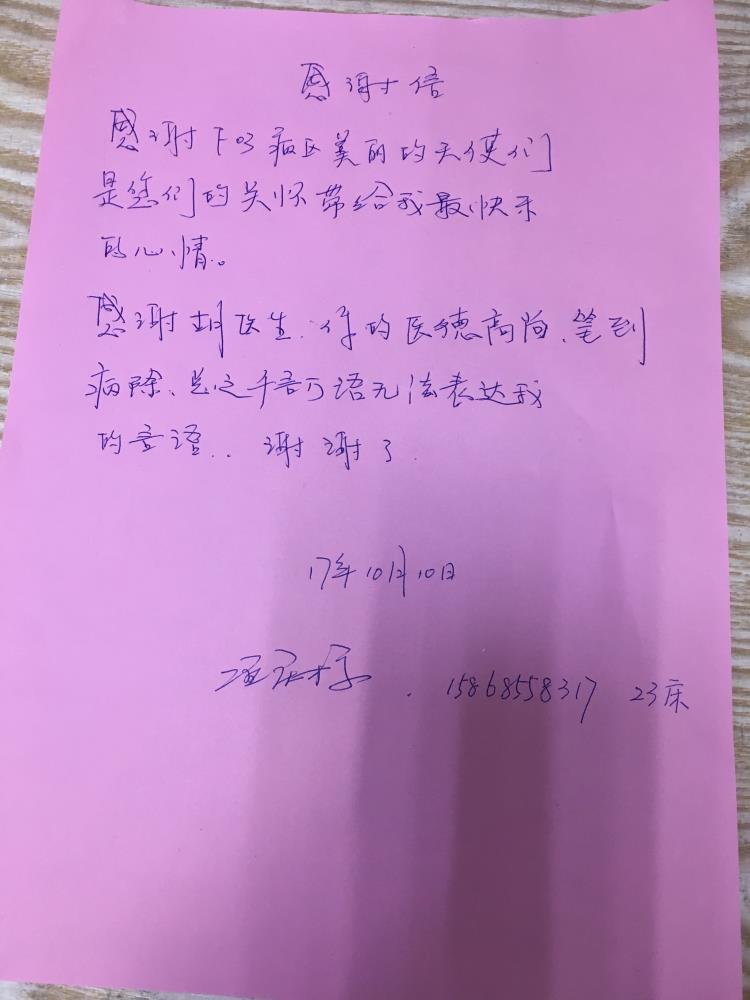 感谢信
感谢F03病区美丽的天使们
是您们的关怀带给我最快乐
的心情。
感谢胡医生.你的医德高尚、笔到
病除、总之千言万语无法表达我
的言语.. 谢谢了.
17年10月10日
15868558317 23床